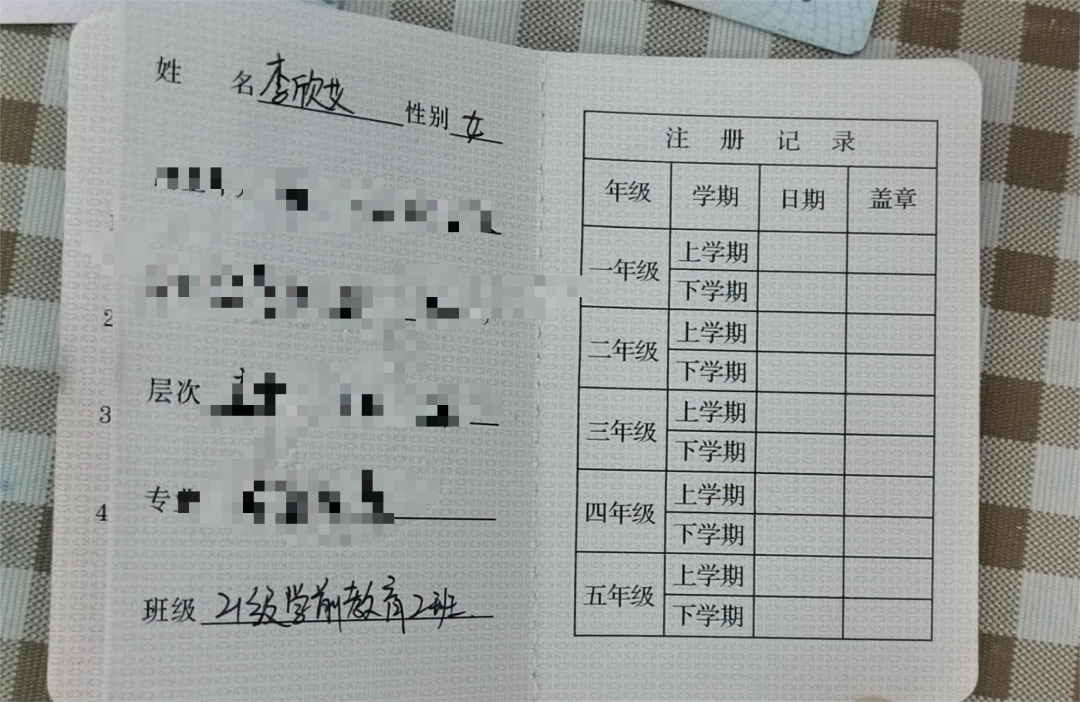 姓 名 李欣艾 性别 女
2
层次
3
专业
4
班级 21级学前教育2班
注册记录
年级 学期 日期 盖章
一年级 上学期
下学期
二年级 上学期
下学期
三年级 上学期
下学期
四年级 上学期
下学期
五年级 上学期
下学期